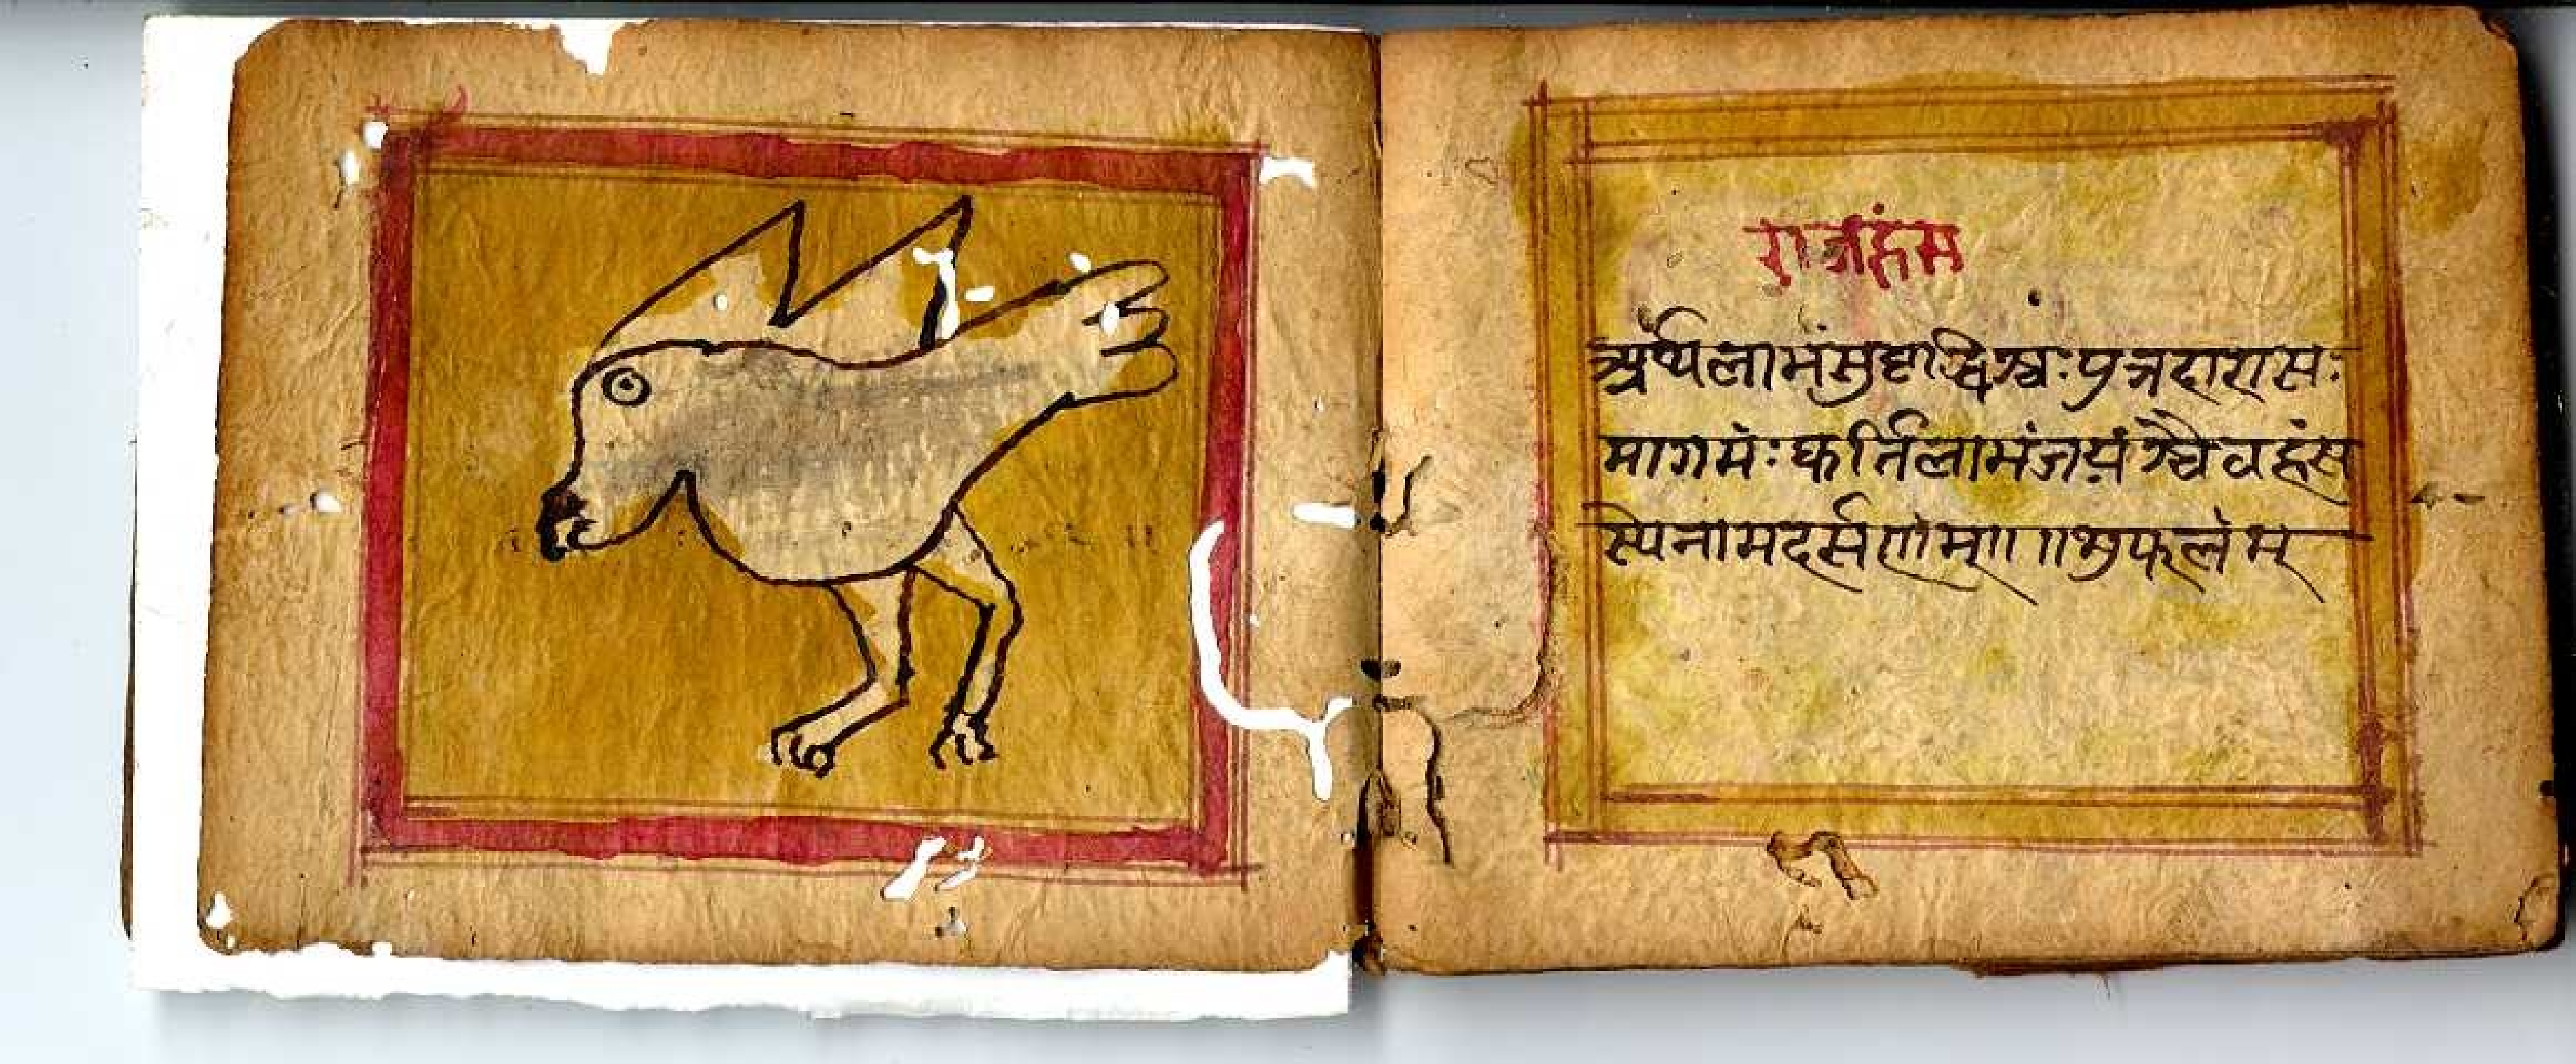 राजहंस
अर्थलाभंसुहृाद्विश्चःपुत्रदारास:
मागमंःकर्तिलाभंजयंश्चैवहंस
स्येनामदर्सणंम्॥॥शुफलंम्